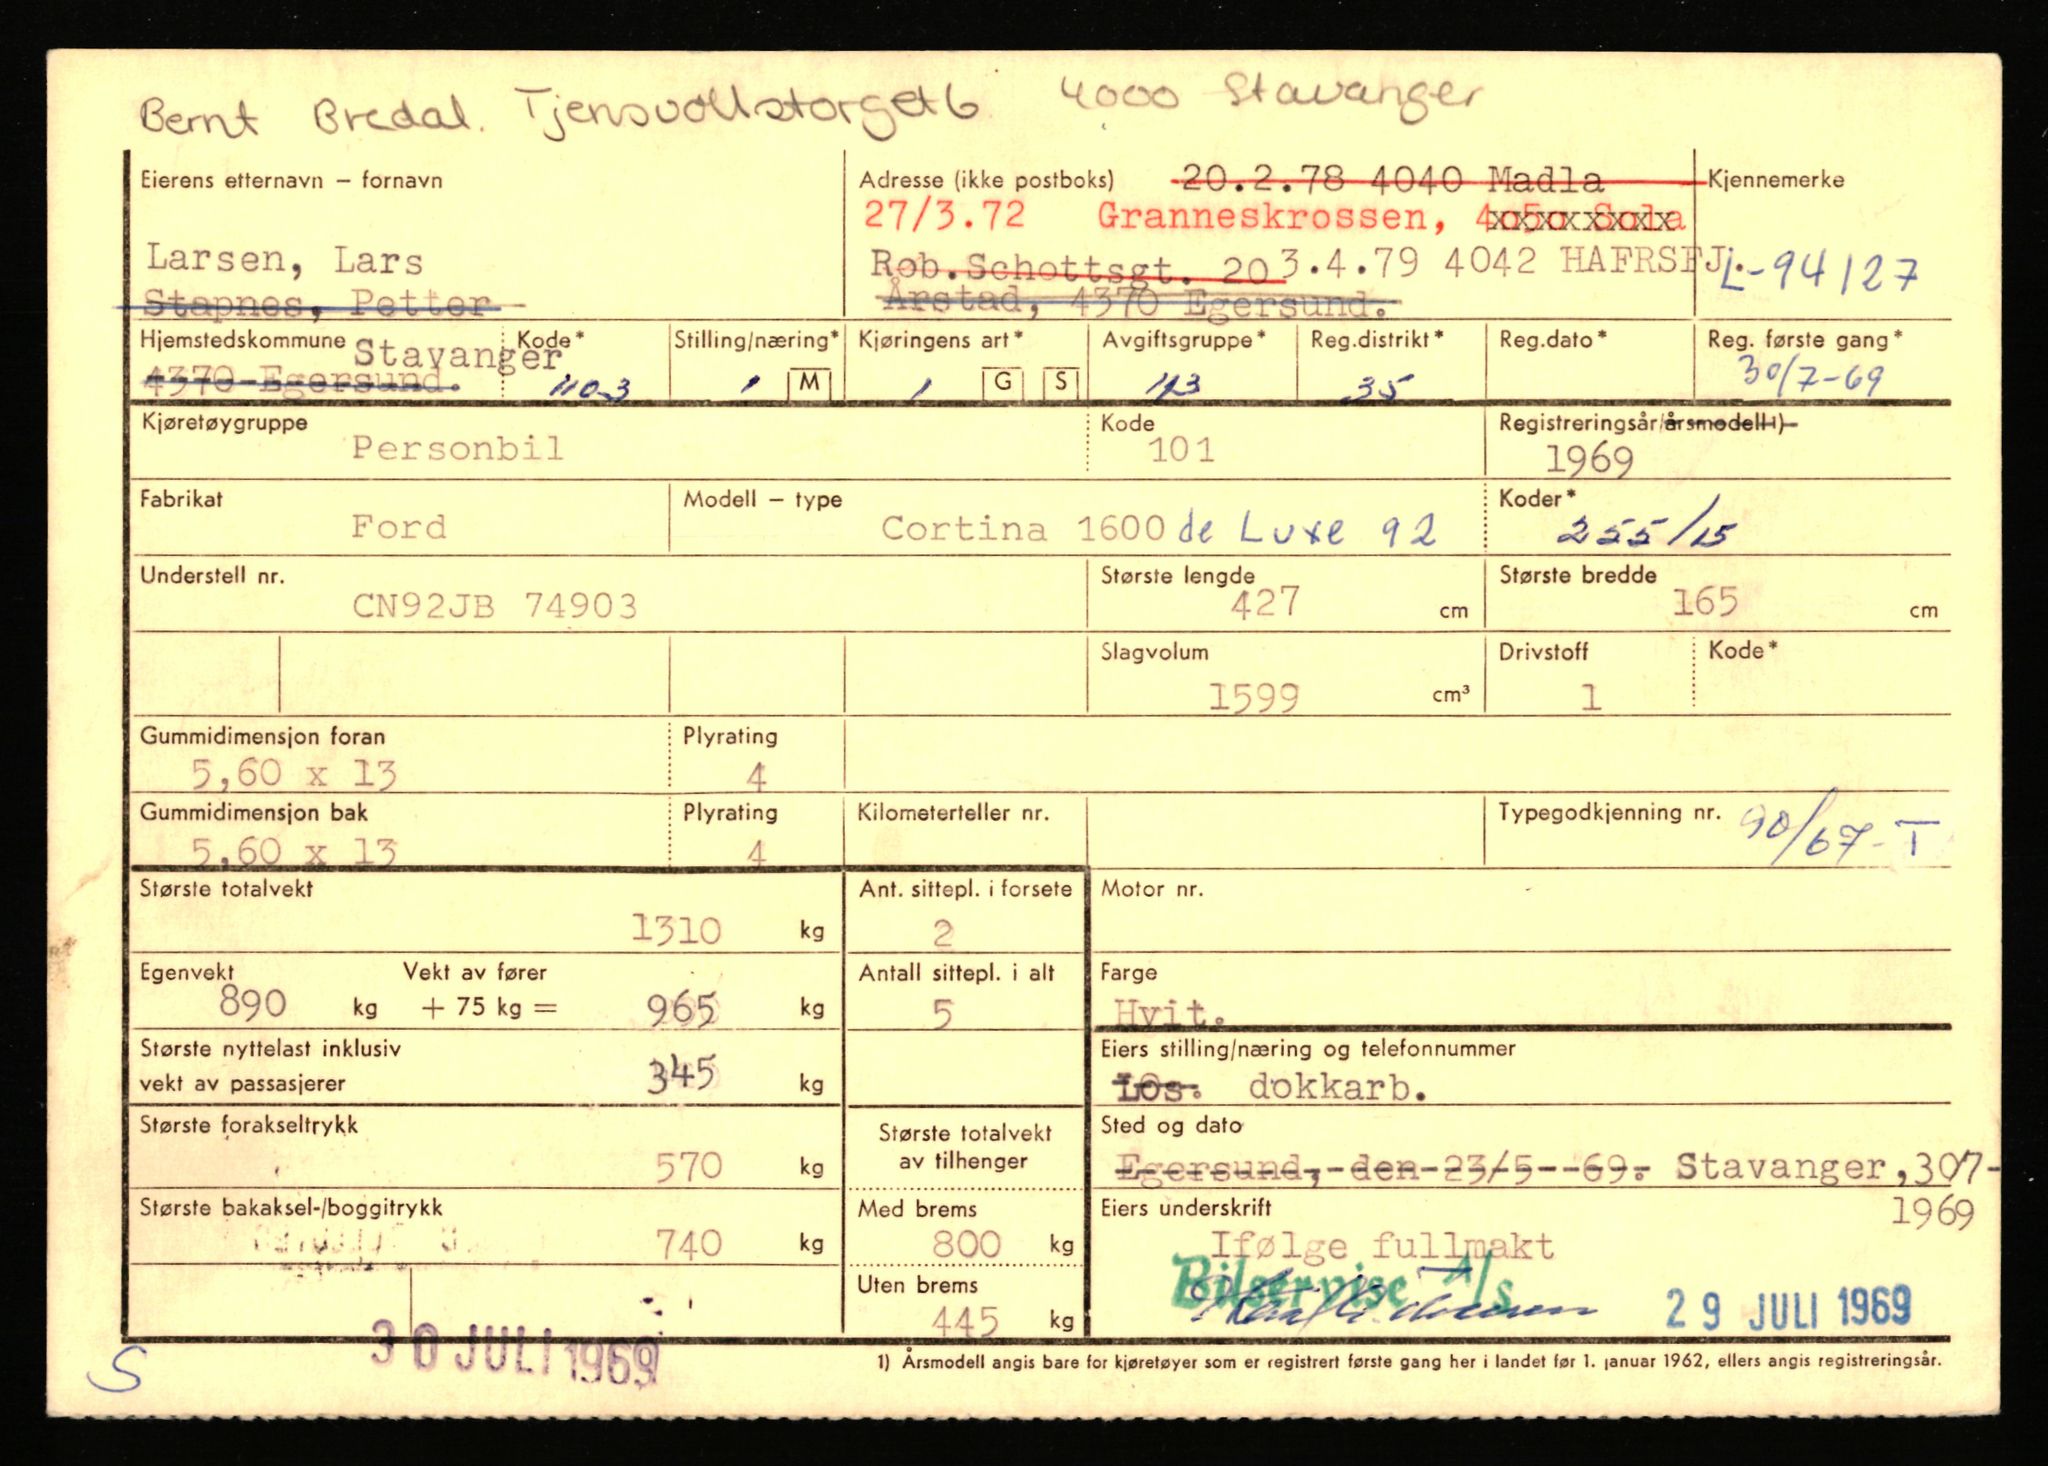 Bernt Bredal. Tjensvollstorget 6 4000 Stavanger
Eierens etternavn – fornavn
Adresse (ikke postboks) 20.2.78 4040 Madla
Kjennemerke
27/3.72 Granneskrossen, 4050 Sola
Larsen, Lars
Rob.Schottsgt. 20 3.4.79 4042 HAFRSFJ.
L-94127
Stapnes, Petter
Årstad, 4370 Egersund.
Hjemstedskommune Kode* Stilling/næring* Kjøringens art* Avgiftsgruppe* Reg.distrikt* Reg.dato* Reg. første gang*
Stavanger
4370 Egersund. 1103 1 M 1 G S 113 35 30/7-69
Kjøretøygruppe Kode Registreringsår/årsmodell 1)
Personbil 101 1969
Fabrikat Modell – type Koder*
Ford Cortina 1600 de Luxe 92 255/15
Understell nr. Største lengde Største bredde
CN92JB 74903 427 cm 165 cm
Slagvolum Drivstoff Kode*
1599 cm³ 1
Gummidimensjon foran Plyrating
5,60 x 13 4
Gummidimensjon bak Plyrating Kilometerteller nr. Typegodkjenning nr. 90/67-T
5,60 x 13 4
Største totalvekt Ant. sittepl. i forsete Motor nr.
1310 kg 2
Egenvekt Vekt av fører Antall sittepl. i alt Farge
890 kg + 75 kg = 965 kg 5 Hvit.
Største nyttelast inklusiv
vekt av passasjerer 345 kg
Eiers stilling/næring og telefonnummer
Los. dokkarb.
Største forakseltrykk
570 kg
Største totalvekt
av tilhenger
Sted og dato
Egersund, den 23/5 -69. Stavanger, 30/7-
1969
Største bakaksel-/boggitrykk Med brems Eiers underskrift
740 kg 800 kg Ifølge fullmakt
Bilservise A/s
Uten brems
445 kg
29 JULI 1969
30 JULI 1969
S
1) Årsmodell angis bare for kjøretøyer som er registrert første gang her i landet før 1. januar 1962, ellers angis registreringsår.